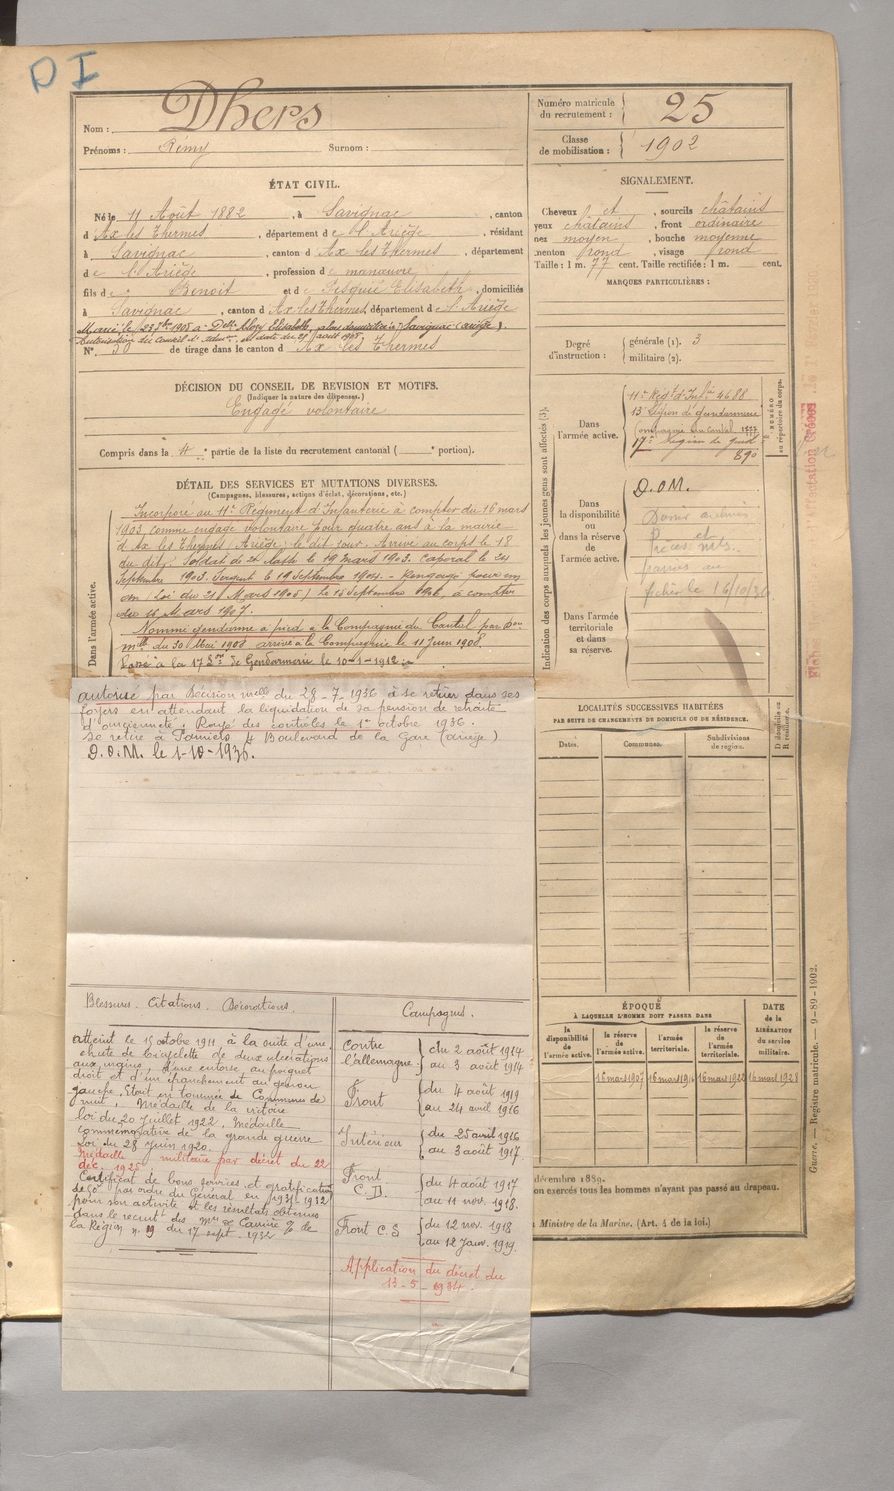 DI
Nom : Dhers
Prénoms : Rémy Surnom :
Numéro matricule du recrutement : 25
Classe de mobilisation : 1902
ÉTAT CIVIL.
Né le 11 Août 1882, à Savignac, canton
d'Ax les Thermes, département de l'Ariège, résidant
à Savignac, canton d'Ax les Thermes, département
de l'Ariège, profession de manœuvre
fils de Benoit et de Pesquié Elisabeth, domiciliés
à Savignac, canton d'Ax les Thermes, département de l'Ariège
Marié le 23 7bre 1908 à Delle Alozy Elisabeth, alors domiciliée à Savignac (Ariège).
Autorisation du Conseil d'admon en date du 28 août 1908
N° 30 de tirage dans le canton d'Ax les Thermes
SIGNALEMENT.
Cheveux et, sourcils châtains
yeux châtains, front ordinaire
nez moyen, bouche moyenne
menton rond, visage rond
Taille : 1 m. 77 cent. Taille rectifiée : 1 m. cent.
MARQUES PARTICULIÈRES :
Degré d'instruction : générale (1). 3
militaire (2).
DÉCISION DU CONSEIL DE REVISION ET MOTIFS.
(Indiquer la nature des dispenses.)
Engagé volontaire
Compris dans la 4e partie de la liste du recrutement cantonal ( e portion).
DÉTAIL DES SERVICES ET MUTATIONS DIVERSES.
(Campagnes, blessures, actions d'éclat, décorations, etc.)
Dans l'armée active.
Incorporé au 11e Régiment d'Infanterie à compter du 16 mars
1903, comme engagé volontaire pour quatre ans à la mairie
d'Ax les Thermes, Ariège, le dit jour. Arrivé au corps le 18
du dit. Soldat de 2e classe le 19 mars 1903. Caporal le 24
Septembre 1903. Sergent le 19 Septembre 1904. Rengagé pour un
an (Loi du 21 Mars 1905) le 14 Septembre 1906, à compter
du 16 Mars 1907.
Nommé gendarme à pied à la Compagnie du Cantal par Don
mlle du 30 Mai 1908 arrivé à la Compagnie le 11 Juin 1908.
Passé à la 17e Lon de Gendarmerie le 10-1-1912
autorisé par Décision mell du 28-7-1936 à se retirer dans ses
foyers en attendant la liquidation de sa pension de retraite
d'ancienneté. Rayé des contrôles le 1er octobre 1936.
se retire à Pamiers 4 Boulevard de la Gare (ariège)
D.O.M. le 1-10-1936.
Indication des corps auxquels les jeunes gens sont affectés (3).
Dans l'armée active.
11e Régt d'Infie 4688
13e Légion de gendarmerie
Compagnie du Cantal
17e Légion de gend
890
NUMÉRO au répertoire du corps.
Dans la disponibilité ou dans la réserve de l'armée active.
D.O.M.
Dans l'armée territoriale et dans sa réserve.
fichier le 16/10/36
LOCALITÉS SUCCESSIVES HABITÉES
PAR SUITE DE CHANGEMENTS DE DOMICILE OU DE RÉSIDENCE.
Dates. Communes. Subdivisions de région.
D domicile ou R résidence.
Blessures. Citations. Décorations.
atteint le 15 octobre 1911, à la suite d'une
chute de bicyclette de deux ulcérations
aux mains, d'une entorse au poignet
droit et d'un épanchement au genou
gauche. Etant en tournée de Commune de
nuit. Médaille de la victoire
loi du 20 Juillet 1922. Médaille
commémorative de la grande guerre
Loi du 28 Juin 1920.
Médaille militaire par décret du 22
déc. 1925
Certificat de bons services et gratification
de 50f par ordre du Général en 1931-1932
pour son activité et les résultats obtenus
dans le recrut des Mres de Carrière de
la Région n. 19 du 17 sept. 1932
Campagnes.
Contre l'allemagne du 2 août 1914
au 3 août 1914
Front du 4 août 1919
au 24 avril 1916
Intérieur du 25 avril 1916
au 3 août 1917
Front C.D. du 4 août 1917
au 11 nov. 1918.
Front C.S du 12 nov. 1918
au 12 Janv. 1919.
Application du décret du
13-5-1934.
ÉPOQUE
À LAQUELLE L'HOMME DOIT PASSER DANS
la disponibilité de l'armée active.
la réserve de l'armée active.
l'armée territoriale.
la réserve de l'armée territoriale.
DATE de la LIBÉRATION du service militaire.
16 mars 1907 16 mars 16 mars 1922 16 mars 1928
décembre 1889.
on exercés tous les hommes n'ayant pas passé au drapeau.
Ministre de la Marine. (Art. 4 de la loi.)
Guerre. — Registre matricule. — 9-89-1902.